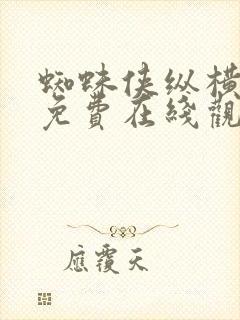 蜘蛛侠纵横
免費在綫觀
應覆天